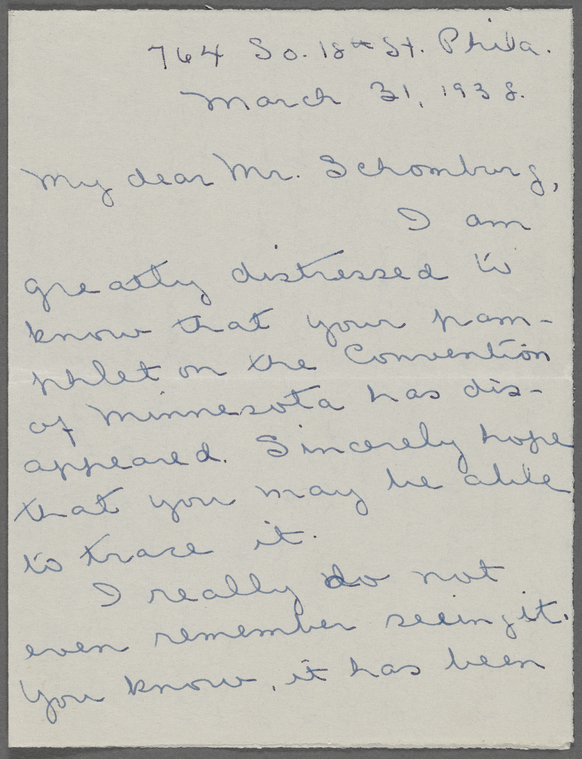 764 So. 18th St. Phila.
March 31, 1938.
My dear Mr. Schomburg,
I am
greatly distressed to
know that your pam-
phlet on the Convention
of Minnesota has dis-
appeared. Sincerely hope
that you may be able
to trace it.
I really do not
even remember seeing it.
You know, it has been